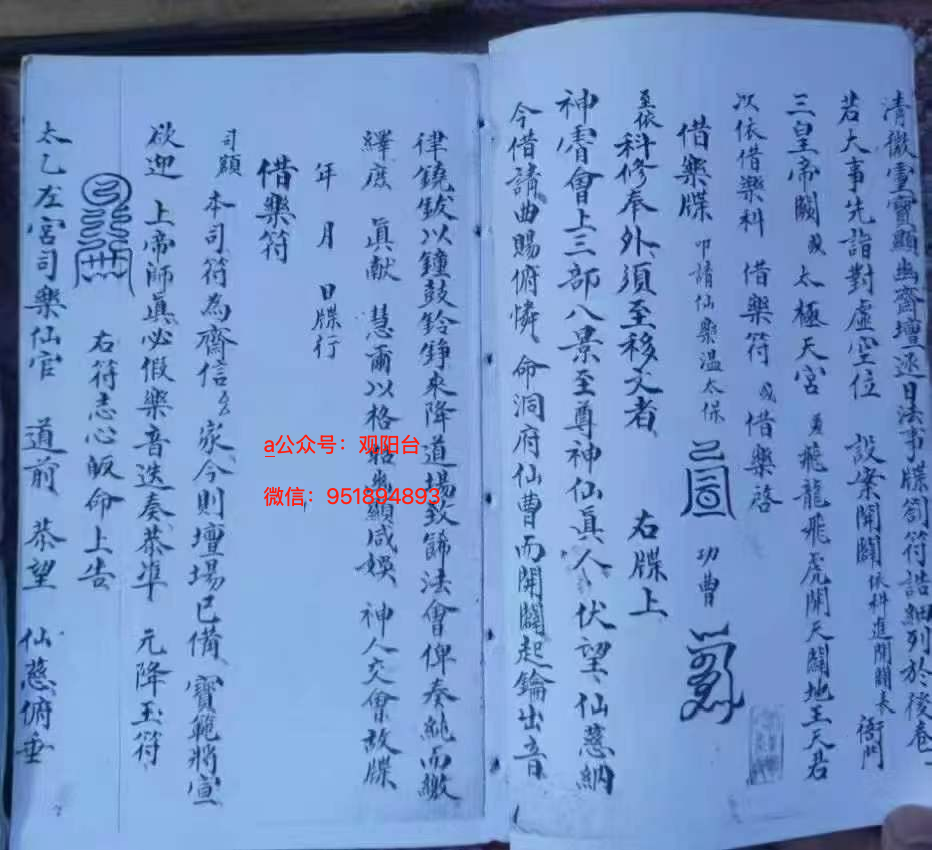 清微靈寶顯幽齋壇逐日法事牒劄符誥細列於後卷一
若大事先詣對虛空位 設案開闢 依科進開闢表 衙門
三皇帝闕或太極天宮 飛龍飛虎開天闢地王天君
次依借樂科 借樂符或借樂啓
借樂牒 叩請仙樂溫太保 功曹
至依科修奉外、須至移文者 右牒上
神霄會上三部八景至尊神仙眞人、伏望、仙慈納
今借請曲賜俯憐、命洞府仙曹而開闢起鑰出音
律鐃鈸以鐘鼓鈴錚來降道場致篩法會俾奏純而繳
繹度 眞献 慧爾以格 顯咸娛 神人交會故牒
年 月 日牒行
借樂符
司額 本司符為齋信 家今則壇場已備、寶範將宣
欲迎 上帝師眞必假樂音迭奏恭準 元降玉符
右符志心皈命上告
太乙左宮司樂仙官 道前 恭望 仙慈俯垂
a公众号：观阳台
微信：951894893